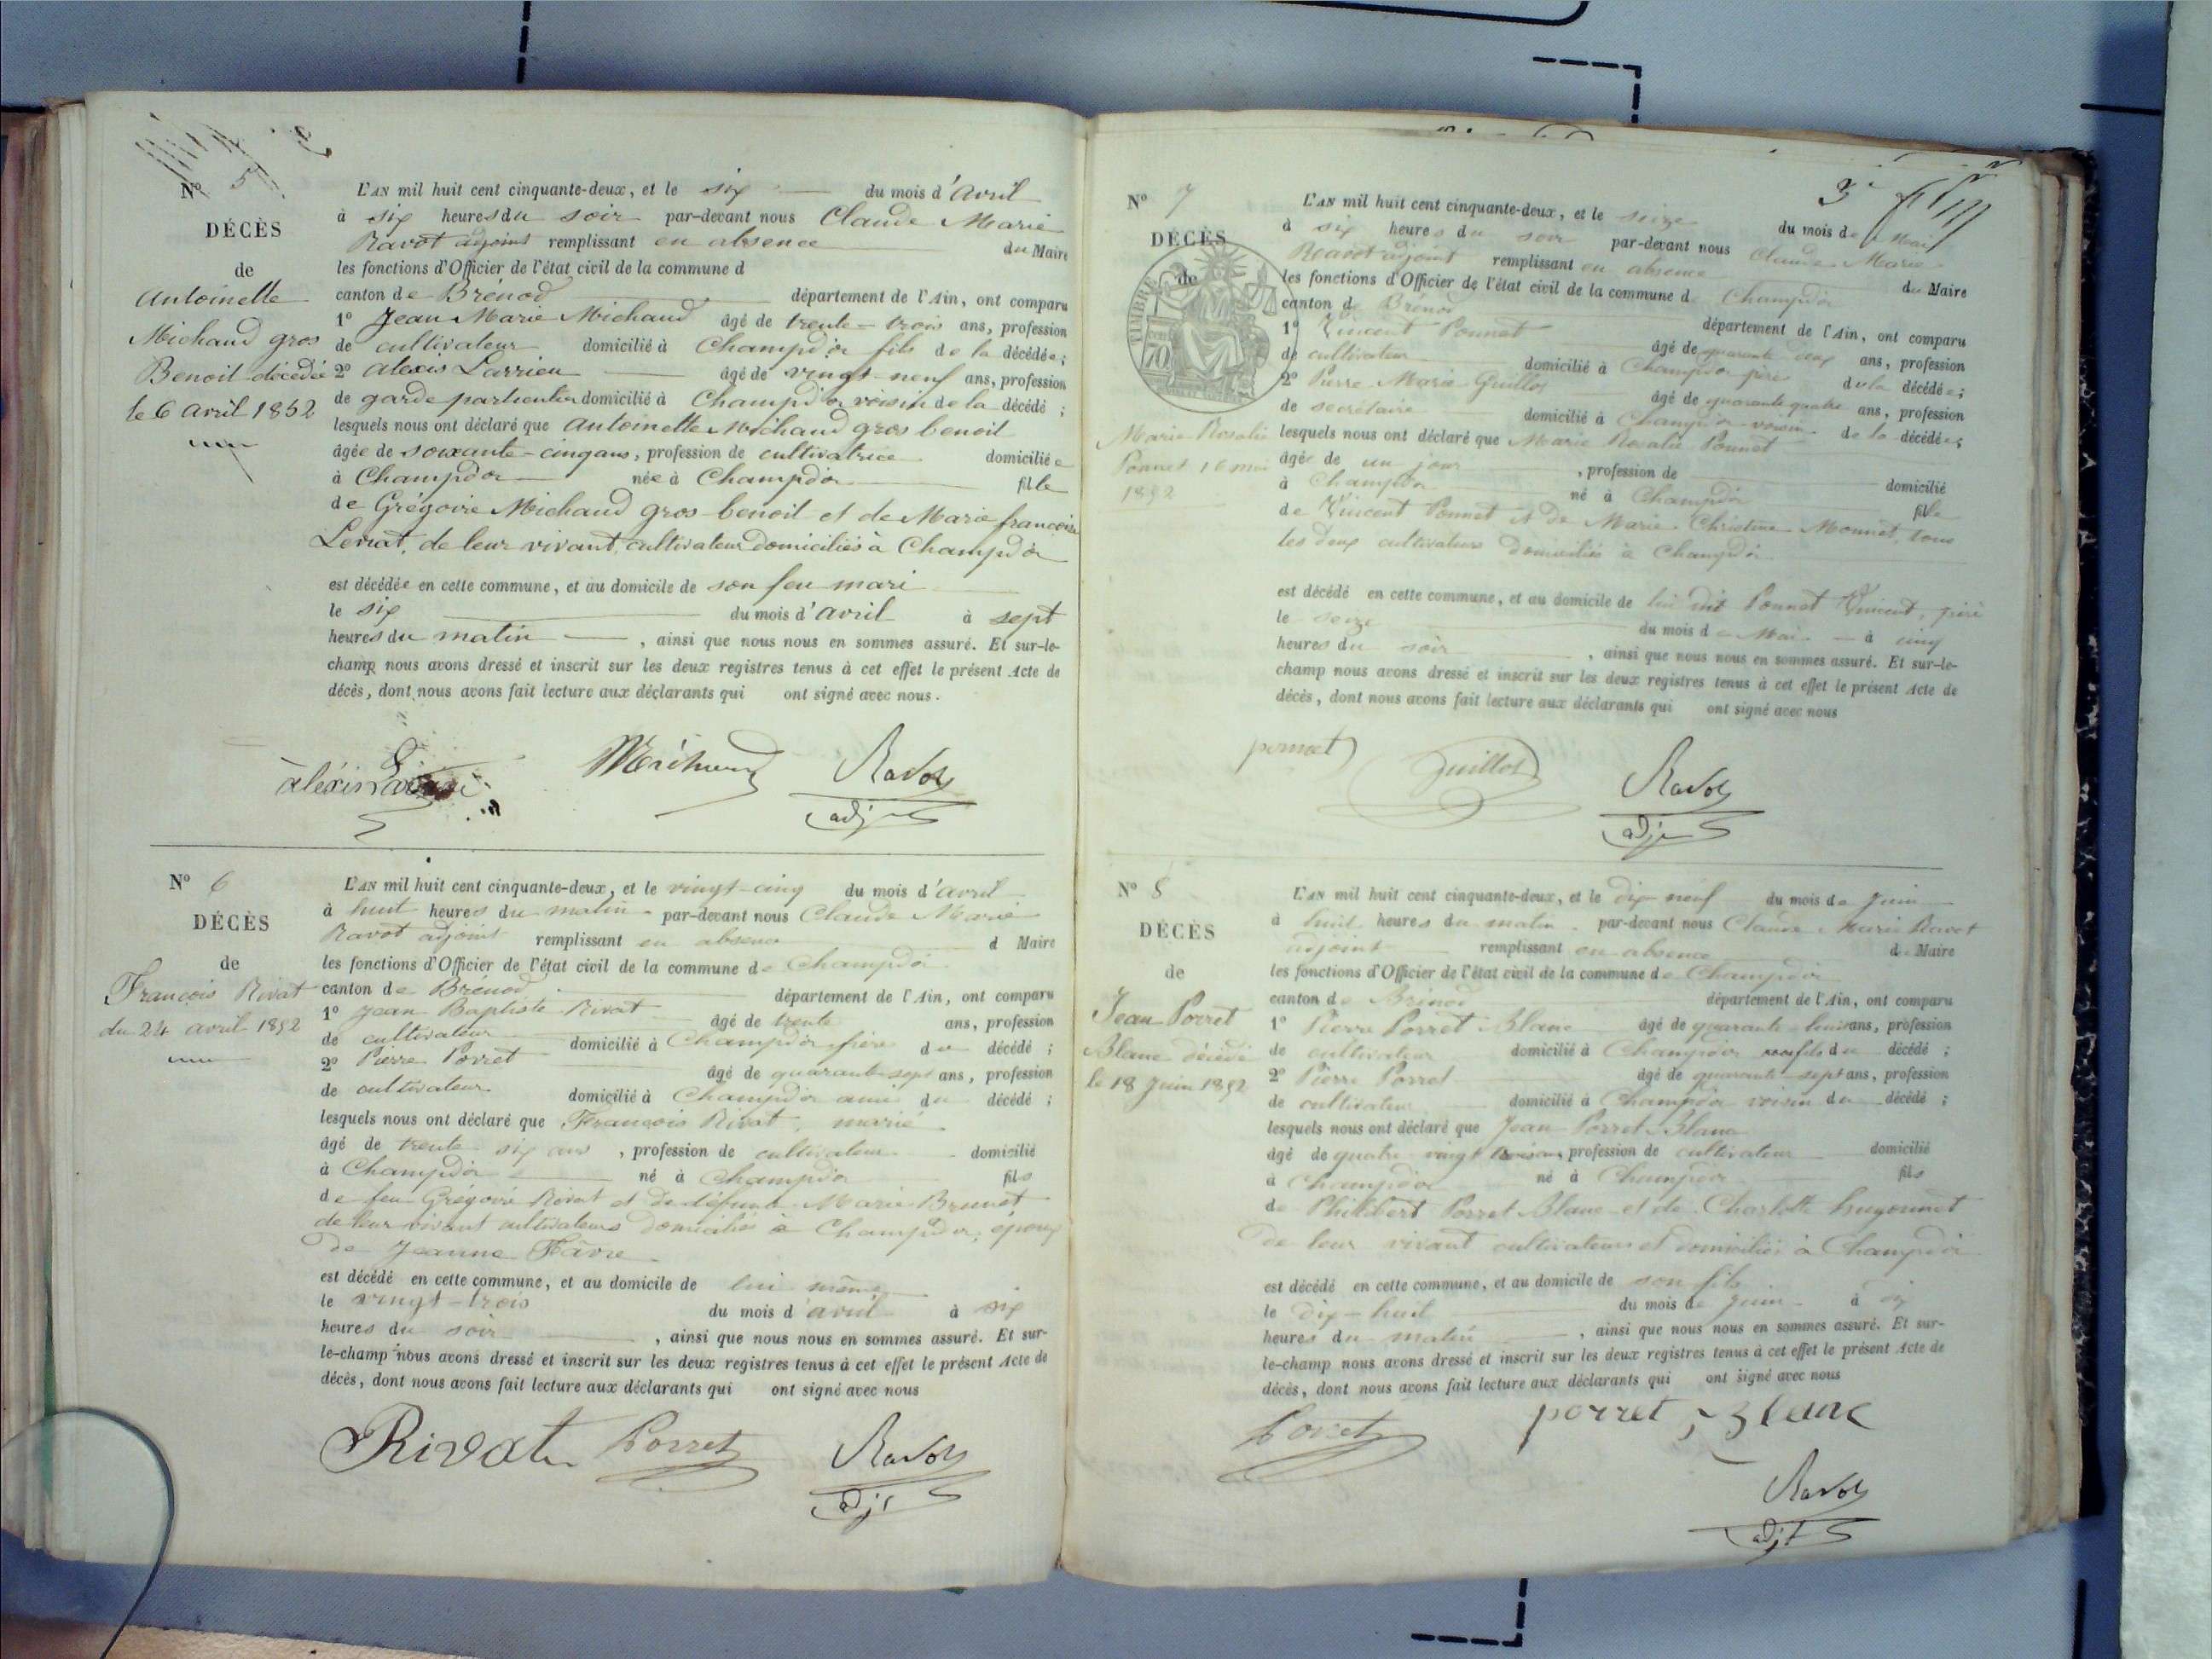 Nº 5
DÉCÈS
de
Antoinette
Michaud gros
Benoit décédée
le 6 avril 1852
L'AN mil huit cent cinquante-deux, et le six du mois d'avril
à six heures du soir par-devant nous Claude Marie
Ravot adjoint remplissant en absence du Maire
les fonctions d'Officier de l'état civil de la commune d
canton de Brénod département de l'Ain, ont comparu
1º Jean Marie Michaud âgé de trente-trois ans, profession
de cultivateur domicilié à Champdor fils de la décédée;
2º alexis Larrieu âgé de vingt-neuf ans, profession
de garde particulier domicilié à Champdor voisin de la décédé;
lesquels nous ont déclaré que Antoinette Michaud gros benoit
âgée de soixante-cinq ans, profession de cultivatrice domiciliée
à Champdor née à Champdor fille
de Grégoire Michaud gros benoit et de Marie françoise
de leur vivant, cultivateur domiciliés à Champdor
est décédée en cette commune, et au domicile de son feu mari
le six du mois d'avril à sept
heures du matin, ainsi que nous nous en sommes assuré. Et sur-le-
champ nous avons dressé et inscrit sur les deux registres tenus à cet effet le présent Acte de
décès, dont nous avons fait lecture aux déclarants qui ont signé avec nous.
aléxis Michaud Ravot
adj
Nº 6
DÉCÈS
de
François Rivat
du 24 avril 1852
L'AN mil huit cent cinquante-deux, et le vingt-cinq du mois d'avril
à huit heures du matin par-devant nous Claude Marie
Ravot adjoint remplissant en absence d Maire
les fonctions d'Officier de l'état civil de la commune de Champdor
canton de Brénod département de l'Ain, ont comparu
1º Jean Baptiste Rivat âgé de trente ans, profession
de cultivateur domicilié à Champdor frère du décédé;
2º Pierre Porret âgé de quarante sept ans, profession
de cultivateur domicilié à Champdor ami du décédé;
lesquels nous ont déclaré que François Rivat, marié
âgé de trente six ans, profession de cultivateur domicilié
à Champdor né à Champdor fils
de feu Grégoire Rivat et de défunte Marie Brunet
de leur vivant cultivateurs domiciliés à Champdor, époux
de Jeanne Fâvre
est décédé en cette commune, et au domicile de lui même
le vingt-trois du mois d'avril à six
heures du soir, ainsi que nous nous en sommes assuré. Et sur-
le-champ nous avons dressé et inscrit sur les deux registres tenus à cet effet le présent Acte de
décès, dont nous avons fait lecture aux déclarants qui ont signé avec nous
Rivat Porret Ravot
adjt
Nº 7
DÉCÈS
de
TIMBRE
70
Marie Rosalie
Ponnet 16 mai
1852
L'AN mil huit cent cinquante-deux, et le seize du mois de Mai
à six heures du soir par-devant nous Claude Marie
Ravot adjoint remplissant en absence du Maire
les fonctions d'Officier de l'état civil de la commune de Champdor
canton de Brénod département de l'Ain, ont comparu
1º Vincent Ponnet âgé de quarante deux ans, profession
de cultivateur domicilié à Champdor père de la décédée;
2º Pierre Marie Guillot âgé de quarante quatre ans, profession
de secrétaire domicilié à Champdor voisin de la décédée;
lesquels nous ont déclaré que Marie Rosalie Ponnet
âgée de un jour, profession de domicilié
à Champdor né à Champdor fille
de Vincent Ponnet et de Marie Christine Monnet, tous
les deux cultivateurs domiciliés à Champdor
est décédé en cette commune, et au domicile de lui dit Ponnet Vincent, père
le seize du mois de Mai à cinq
heures du soir, ainsi que nous nous en sommes assuré. Et sur-le-
champ nous avons dressé et inscrit sur les deux registres tenus à cet effet le présent Acte de
décès, dont nous avons fait lecture aux déclarants qui ont signé avec nous
ponnet Guillot Ravot
adj
Nº 8
DÉCÈS
de
Jean Porret
Blanc décédé
le 18 Juin 1852
L'AN mil huit cent cinquante-deux, et le dix neuf du mois de Juin
à huit heures du matin par-devant nous Claude Marie Ravot
adjoint remplissant en absence du Maire
les fonctions d'Officier de l'état civil de la commune de Champdor
canton de Brénod département de l'Ain, ont comparu
1º Pierre Porret Blanc âgé de quarante huit ans, profession
de cultivateur domicilié à Champdor fils du décédé;
2º Pierre Porret âgé de quarante-sept ans, profession
de cultivateur domicilié à Champdor voisin du décédé;
lesquels nous ont déclaré que Jean Porret Blanc
âgé de quatre vingt trois ans, profession de cultivateur domicilié
à Champdor né à Champdor fils
de Philibert Porret Blanc et de Charlotte hugonnet
de leur vivant cultivateurs et domiciliés à Champdor
est décédé en cette commune, et au domicile de son fils
le dix-huit du mois de Juin à six
heures du matin, ainsi que nous nous en sommes assuré. Et sur-
le-champ nous avons dressé et inscrit sur les deux registres tenus à cet effet le présent Acte de
décès, dont nous avons fait lecture aux déclarants qui ont signé avec nous
Porret porret Blanc
Ravot
adjt